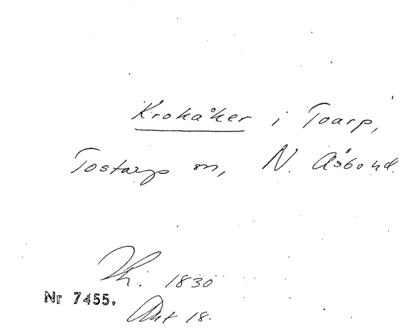 Krokåker i Toarp,
Tostarp sn, N. Åsbo hd.
1830
Nr 7455.
Akt 18.